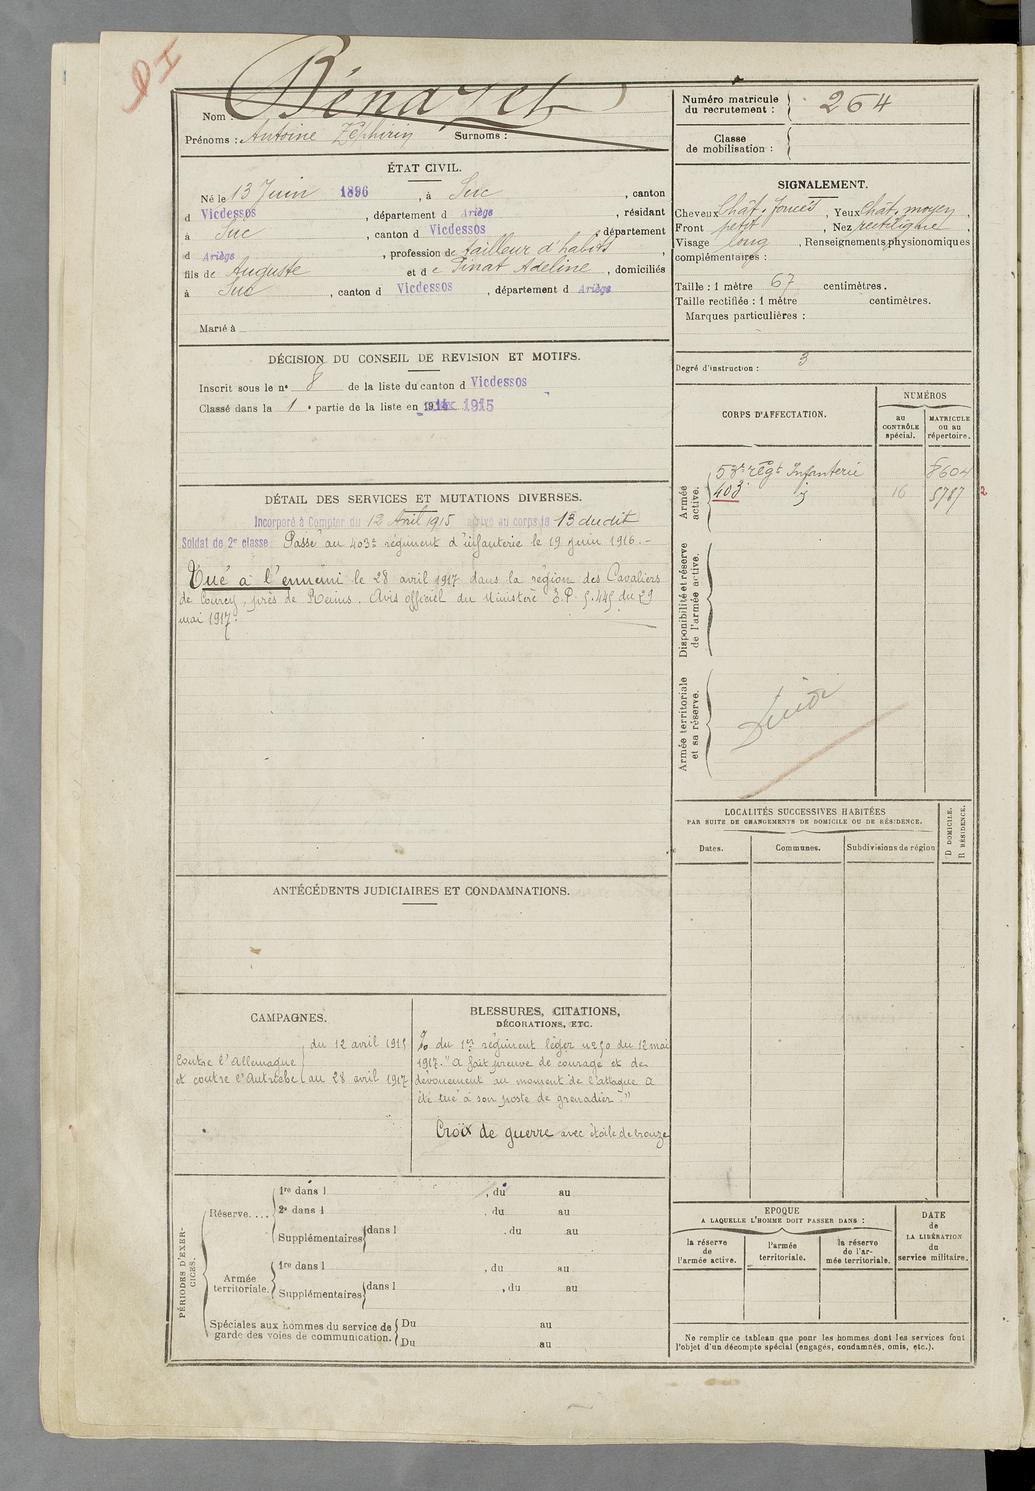 Nom : Bénazet
Prénoms : Antoine Zéphirin Surnoms :
ÉTAT CIVIL.
Né le 13 Juin 1896, à Suc, canton
d Vicdessos, département d Ariège, résidant
à Suc, canton d Vicdessos, département
d Ariège, profession de tailleur d'habits,
fils de Auguste et de Pinat Adeline, domiciliés
à Suc, canton d Vicdessos, département d Ariège
Marié à
DÉCISION DU CONSEIL DE REVISION ET MOTIFS.
Inscrit sous le n° 8 de la liste du canton d Vicdessos
Classé dans la 1e partie de la liste en 1915
DÉTAIL DES SERVICES ET MUTATIONS DIVERSES.
Incorporé à Compter du 12 Avril 1915 arrivé au corps le 13 dudit
Soldat de 2e classe Passé au 403e régiment d'infanterie le 19 juin 1916.-
Tué à l'ennemi le 28 avril 1917 dans la région des Cavaliers
de Courcy, près de Reims. Avis officiel du Ministère du 29
mai 1917.
ANTÉCÉDENTS JUDICIAIRES ET CONDAMNATIONS.
CAMPAGNES.
Contre l'Allemagne
et contre l'Autriche
du 12 avril 1915
au 28 avril 1917
BLESSURES, CITATIONS,
DÉCORATIONS, ETC.
du 1er régiment léger n° 50 du 12 mai
1917. "A fait preuve de courage et de
dévouement au moment de l'attaque. A
été tué à son poste de grenadier."
Croix de guerre avec étoile de bronze
PÉRIODES D'EXERCICES.
Réserve....
1re dans l , du au
2e dans l , du au
Supplémentaires dans l , du au
Armée
territoriale.
1re dans l , du au
Supplémentaires dans l , du au
Spéciales aux hommes du service de
garde des voies de communication.
Du au
Du au
Numéro matricule
du recrutement : 264
Classe
de mobilisation :
SIGNALEMENT.
Cheveux Chât. foncés, Yeux chât. moyen,
Front petit, Nez rectiligne,
Visage long, Renseignements physionomiques
complémentaires :
Taille : 1 mètre 67 centimètres.
Taille rectifiée : 1 mètre centimètres.
Marques particulières :
Degré d'instruction : 3
CORPS D'AFFECTATION.
NUMÉROS
au
CONTRÔLE
spécial.
MATRICULE
ou au
répertoire.
Armée
active.
53e régt Infanterie 8604
403e 16 5787 2
Disponibilité et réserve
de l'armée active.
Armée territoriale
et sa réserve.
LOCALITÉS SUCCESSIVES HABITÉES
PAR SUITE DE CHANGEMENTS DE DOMICILE OU DE RÉSIDENCE.
D DOMICILE.
R RÉSIDENCE.
Dates.
Communes.
Subdivisions de région
EPOQUE
A LAQUELLE L'HOMME DOIT PASSER DANS :
la réserve
de
l'armée active.
l'armée
territoriale.
la réserve
de l'ar-
mée territoriale.
DATE
de
LA LIBÉRATION
du
service militaire.
Ne remplir ce tableau que pour les hommes dont les services font
l'objet d'un décompte spécial (engagés, condamnés, omis, etc.).